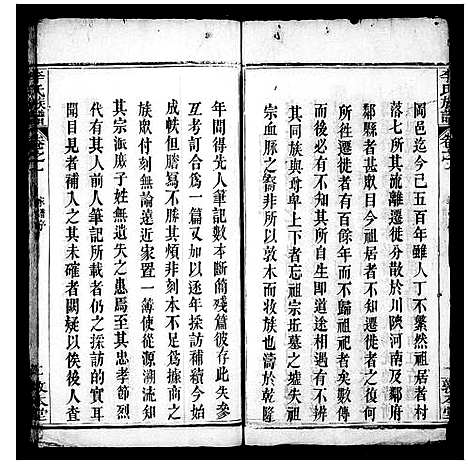 岡邑迄今已五百年雖人丁不繁然祖居者村
落七所其流離遷徙分散於川陝河南及鄰府
鄰縣者甚眾日今祖居者不知遷徙者之何
在遷徙者有百餘年而不歸祖祠者矣數傳
而後必有不知其所自生即道途相遇有失
其先同與尊卑上下者忘祖宗坵墓之墟失祖
宗敦睦之裔非所以敦木而妆族也予於乾隆
年間得先人筆記數本斷簡殘篇彼存此失參
互考訂合為一篇又加以逐年採訪補續今始
成帙但抄膳不勝其煩非刻木不足為據商之
族眾付刻無論遠近家置一簿使從源溯流知
其宗派庶子姓無遺失之患焉至其忠孝節烈
行述有其人前人筆記所載者仍之採訪的實耳
聞目見者補入其未確者闕疑以俟後人查
李氏族譜
卷之一
敦本堂
李氏族譜
卷之一
敦本堂